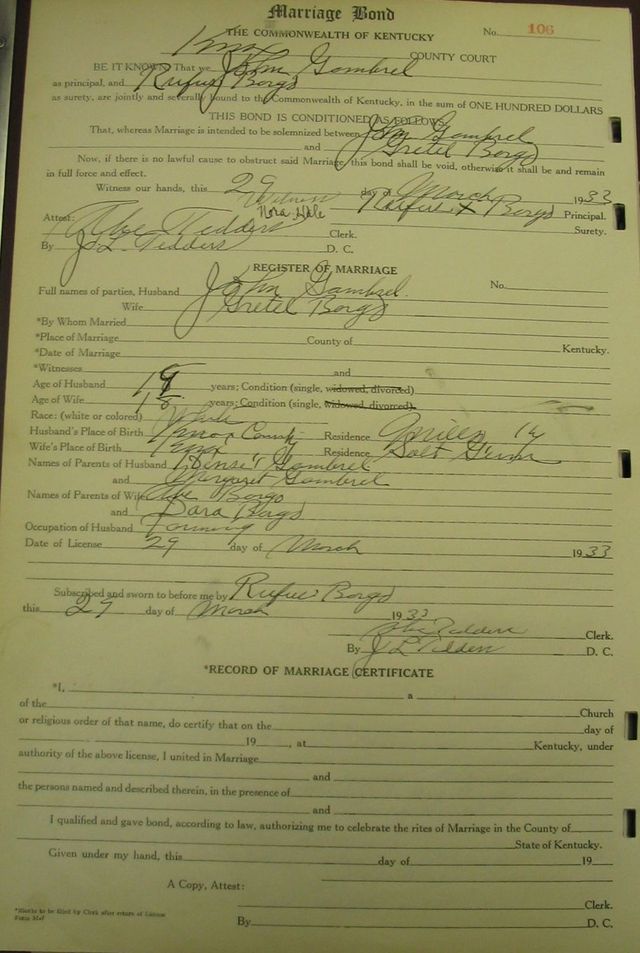 Marriage Bond
THE COMMONWEALTH OF KENTUCKY No. 106
Knox COUNTY COURT
BE IT KNOWN: That we John Gambrel
as principal, and Rufus Borgo
as surety, are jointly and severally bound to the Commonwealth of Kentucky, in the sum of ONE HUNDRED DOLLARS
THIS BOND IS CONDITIONED AS FOLLOWS:
That, whereas Marriage is intended to be solemnized between John Gambrel
and Gretel Borgo
Now, if there is no lawful cause to obstruct said Marriage, this bond shall be void, otherwise it shall be and remain
in full force and effect.
Witness our hands, this 29 day of March 1933
Witness Rufus X Borgo Principal.
Attest: Nora Hale Surety.
Abe Tedders Clerk.
By J. L. Tedders D. C.
REGISTER OF MARRIAGE
Full names of parties, Husband John Gambrel No.
Wife Gretel Borgo
*By Whom Married
*Place of Marriage County of Kentucky.
*Date of Marriage
*Witnesses and
Age of Husband years; Condition (single, widowed, divorced)
Age of Wife 18 years; Condition (single, widowed, divorced)
Race: (white or colored) White
Husband's Place of Birth Knox County Residence
Wife's Place of Birth Knox Residence
Names of Parents of Husband Gambrel
and Margaret Gambrel
Names of Parents of Wife Abe Borgo
and Dora Borgo
Occupation of Husband Farming
Date of License 29 day of March 1933
Subscribed and sworn to before me by Rufus Borgo
this 29 day of March 1933
Abe Tedders Clerk.
By J L Tedders D. C.
*RECORD OF MARRIAGE CERTIFICATE
*I, a
of the Church
or religious order of that name, do certify that on the day of
19 , at Kentucky, under
authority of the above license, I united in Marriage
and
the persons named and described therein, in the presence of
and
I qualified and gave bond, according to law, authorizing me to celebrate the rites of Marriage in the County of
State of Kentucky.
Given under my hand, this day of 19
A Copy, Attest:
Clerk.
By D. C.
*Blanks to be filled by Clerk after return of License